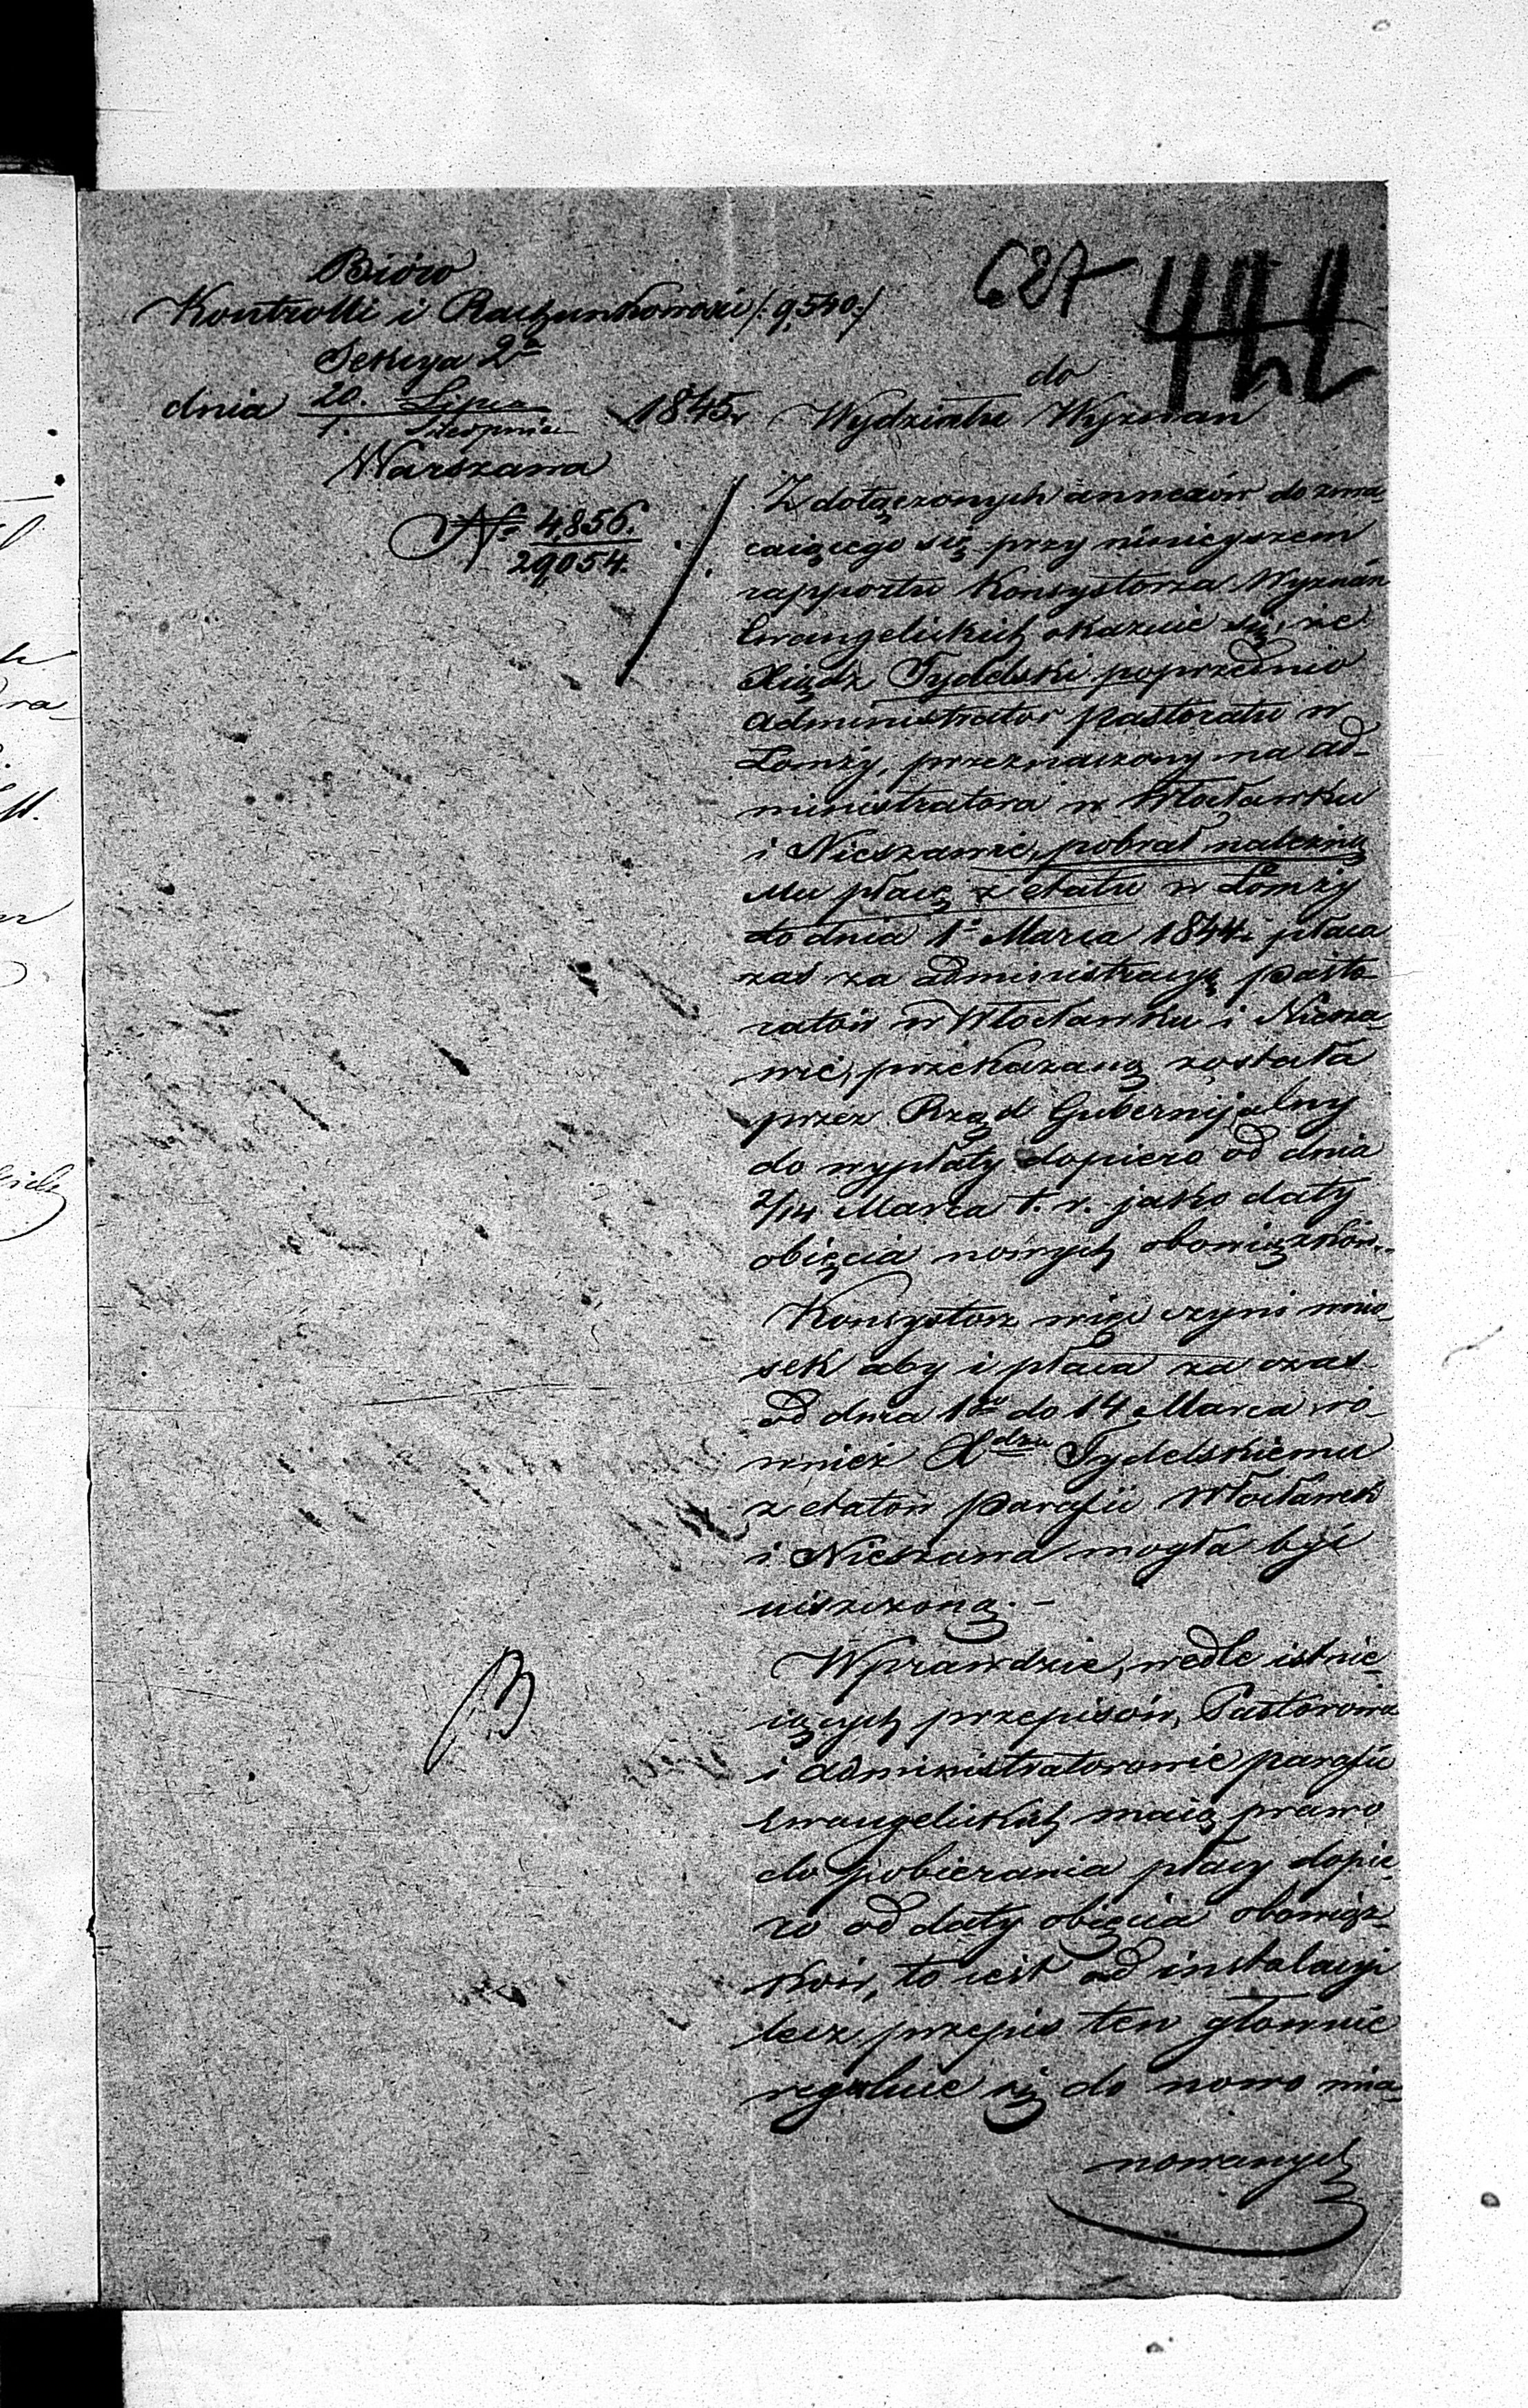 Bióro
Kontrolli i Rachunkowości /:9,540:/
Sekcya 2ª
dnia 20. Lipca / 1. Sierpnia 1845r
Warszawa
N° 4,856. / 29,054.
627
do
Wydziału Wyznan
Z dołączonych annexów do zwra
caiącego się przy ninieyszem
rapportu Konsystorza Wyznań
Ewangelickich okazuie się, że
Xiądz Tydelski poprzednio
administrator pastoratu w
Łomży, przeznaczony na ad-
ministratora w Włocławku
i Nieszawie, pobrał należną
Mu płacę z etatu w Łomży
do dnia 1º Marca 1844 r. płaca
zaś za administracyę pasto-
ratów w Włocławku i Niesza-
wie, przekazaną została
przez Rząd Gubernijalny
do wypłaty dopiero od dnia
2/14 Marca t. r. jako daty
obięcia nowych obowiązków.
Konsystorz więc czyni wnio-
sek aby i płaca za czas
od dnia 1go do 14 Marca ró-
wnież Xdzu Tydelskiemu
z etatów Parafii Włocławek
i Nieszawa mogła być
uiszczoną.-
Wprawdzie, wedle istnie-
iących przepisów, Pastorowie
i administratorowie parafii
Ewangelickich maią prawo
do pobierania płacy dopie-
ro od daty obięcia obowiąz-
ków, to iest od instalacyi
lecz przepis ten głównie
reguluie się do nowo mia-
nowanych